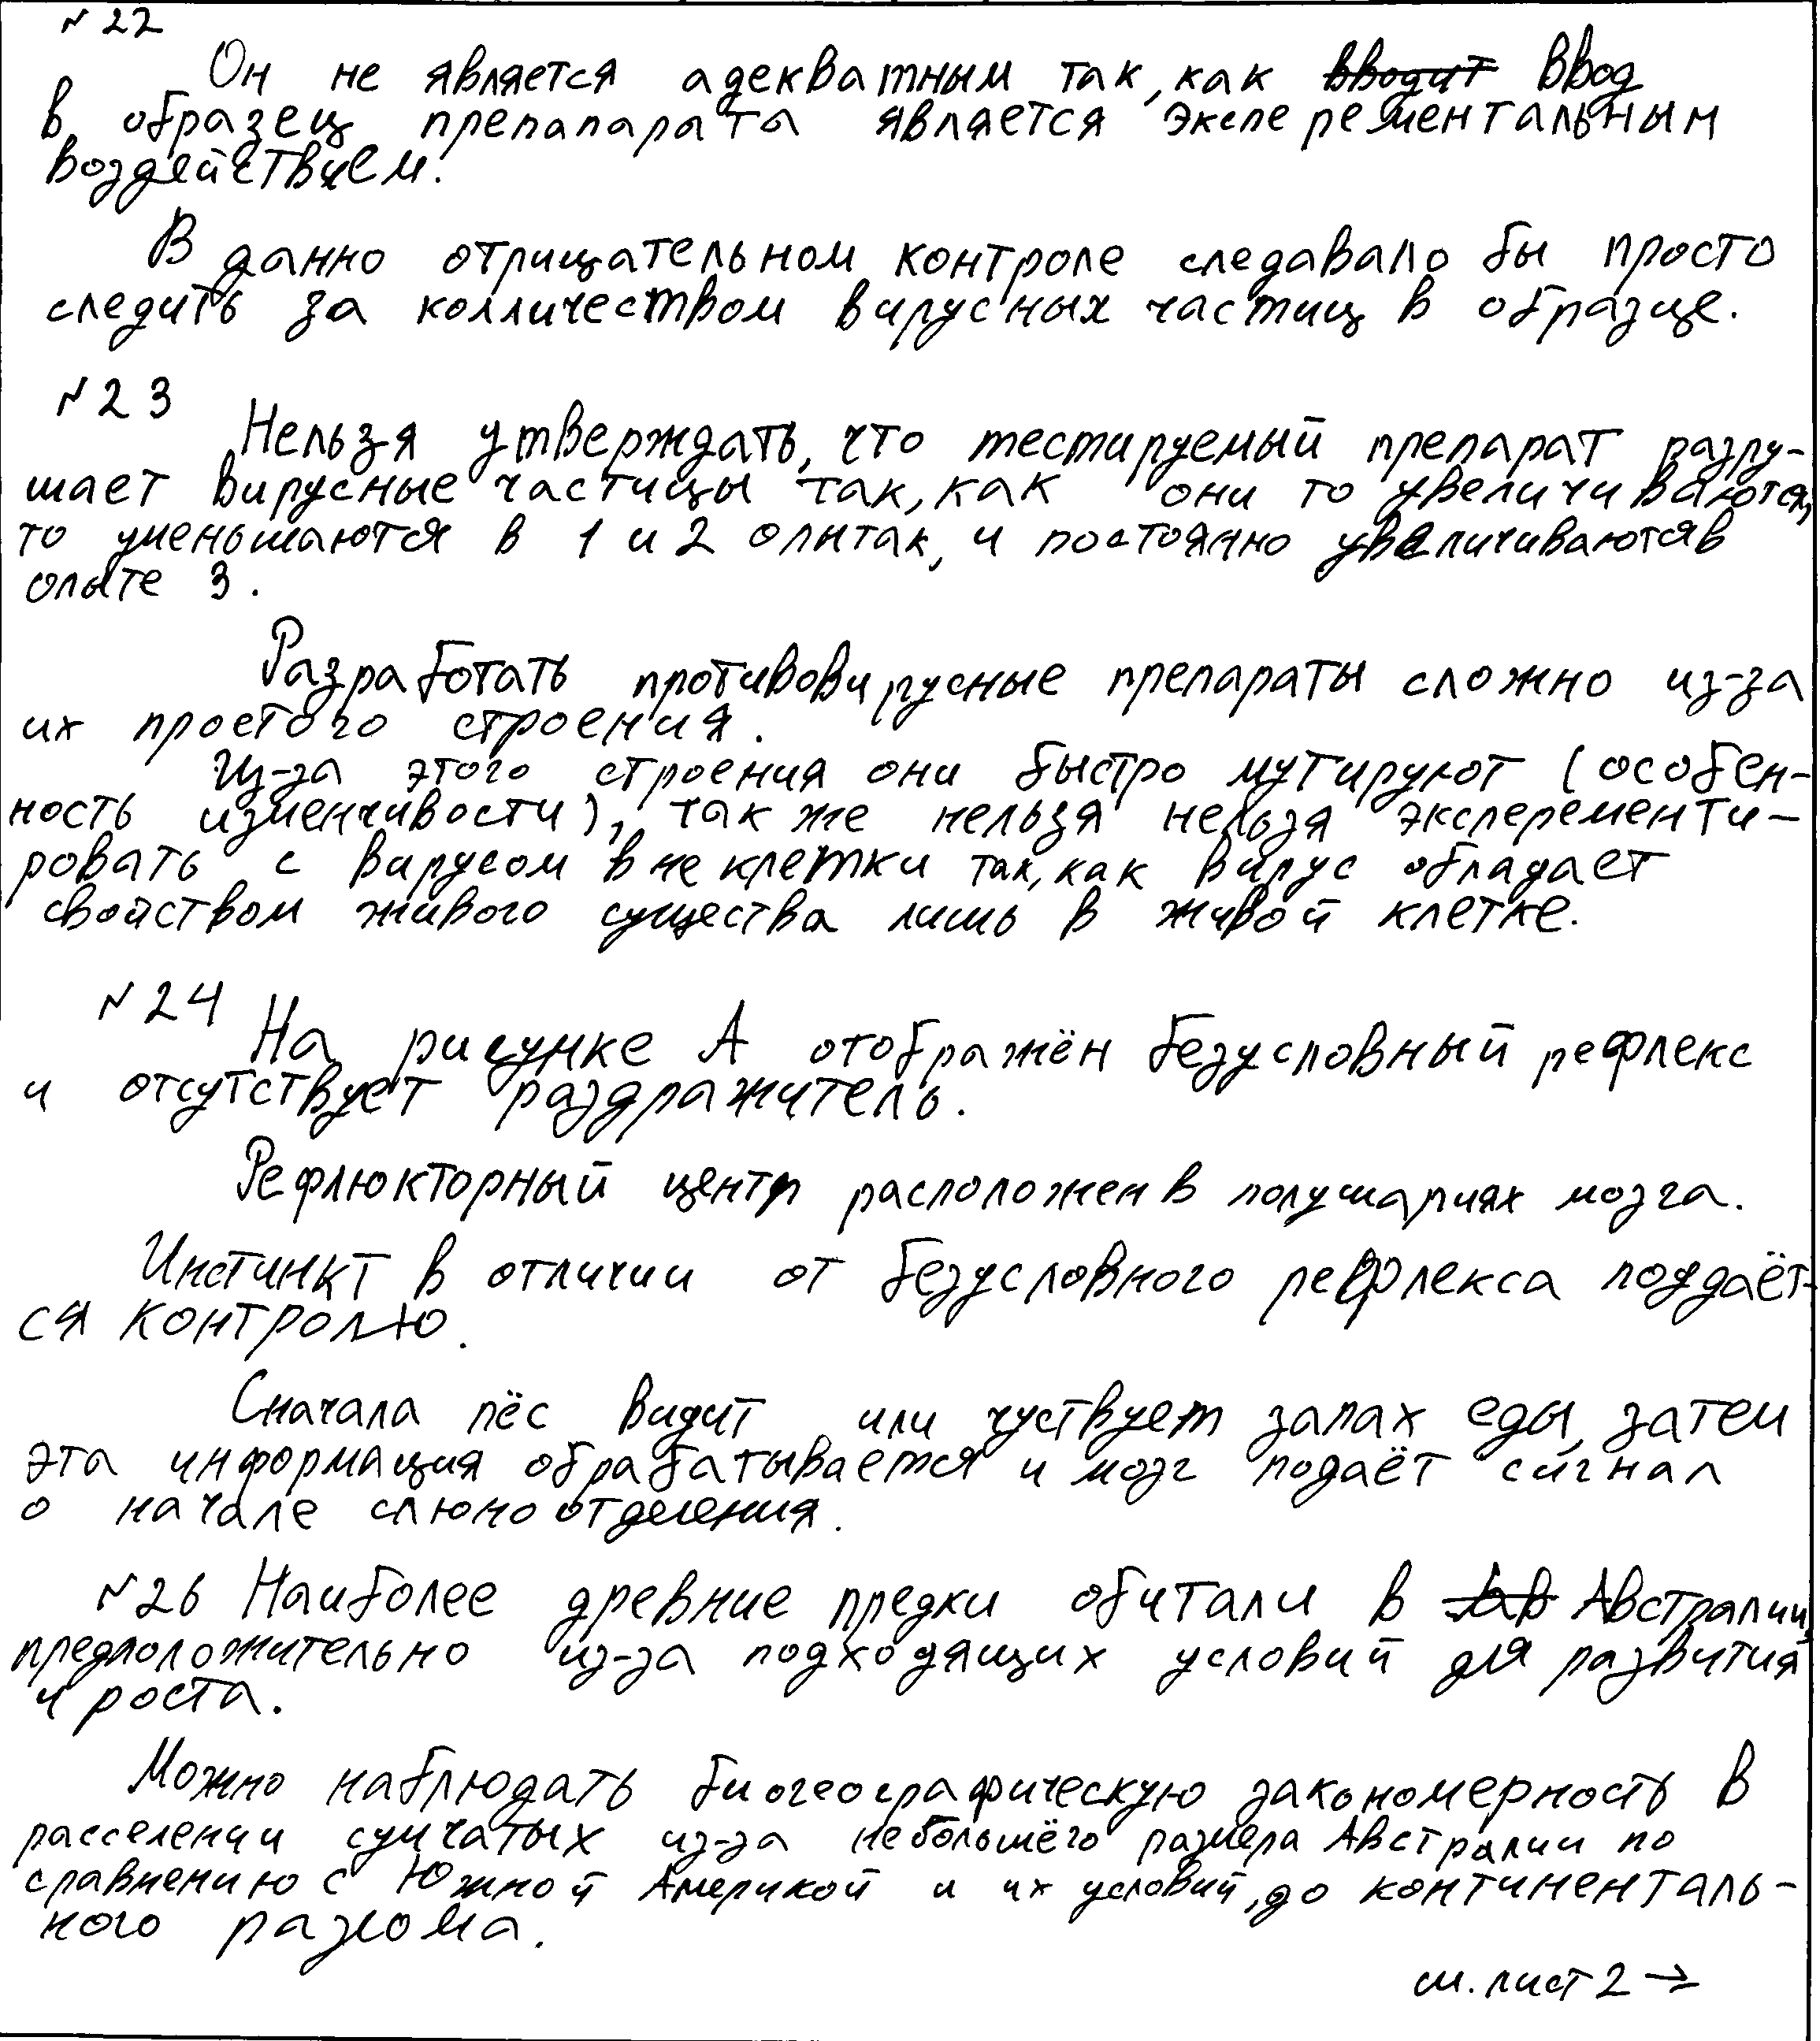 №22
Он не является адекватным так, как вводит ввод
в образец препапарата является эксперементальным
воздействием.
В данно отрицательном контроле следавало бы просто
следить за колличеством вирусных частиц в образце.
№23
Нельзя утверждать, что тестируемый препарат разру-
шает вирусные частицы так, как они то увеличиваются,
то уменьшаются в 1 и 2 опытак, и постоянно увеличиваются в
опыте 3.
Разработать противовирусные препараты сложно из-за
их простого строения.
Из-за этого строения они быстро мутируют (особен-
ность изменчивости), так же нельзя нельзя эксперементи-
ровать с вирусом вне клетки так, как вирус обладает
свойством живого существа лишь в живой клетке.
№24
На рисунке А отображён безусловный рефлекс
и отсутствует раздражитель.
Рефлюкторный центр расположен в полушариях мозга.
Инстинкт в отличии от безусловного рефлекса поддаёт-
ся контролю.
Сначала пёс видит или чуствует запах еды, затем
эта информация обрабатывается и мозг подаёт сигнал
о начале слюноотделения.
№26 Наиболее древние предки обитали в Ав Австралии,
предположительно из-за подходящих условий для развития
и роста.
Можно наблюдать биогеографическую закономерность в
расселении сумчатых из-за небольшёго размера Австралии по
сравнению с Южной Америкой и их условий, до континенталь-
ного разлома.
см. лист 2 →